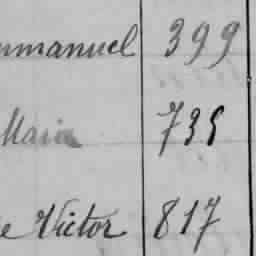 mmanuel 399
Maria 735
e Victor 817